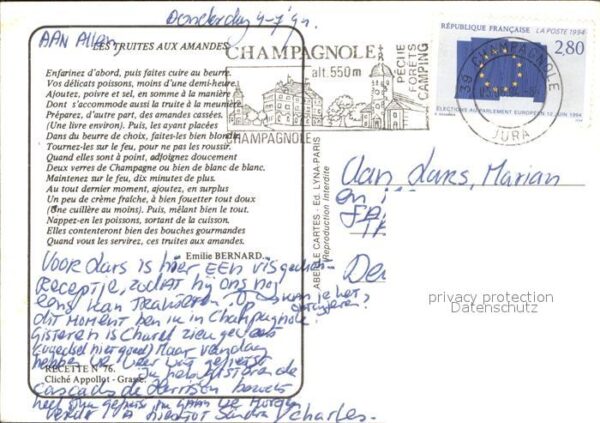 Donderdag 9-7-'94.
AAN Allen,
LES TRUITES AUX AMANDES
Enfarinez d'abord, puis faites cuire au beurre
Vos délicats poissons, moins d'une demi-heure.
Ajoutez, poivre et sel, en somme à la manière
Dont s'accommode aussi la truite à la meunière
Préparez, d'autre part, des amandes cassées.
(Une livre environ). Puis, les ayant placées
Dans du beurre de choix, faites-les bien blondir
Tournez-les sur le feu, pour ne pas les roussir.
Quand elles sont à point, adjoignez doucement
Deux verres de Champagne ou bien de blanc de blanc.
Maintenez sur le feu, dix minutes de plus.
Au tout dernier moment, ajoutez, en surplus
Un peu de crème fraîche, à bien fouetter tout doux
(Une cuillère au moins). Puis, mêlant bien le tout.
Nappez-en les poissons, sortant de la cuisson.
Elles contenteront bien des bouches gourmandes
Quand vous les servirez, ces truites aux amandes.
Emilie BERNARD.
RECETTE N° 76.
Cliché Appollot - Grasse.
CHAMPAGNOLE
alt. 550 m
PÊCHE
FORÊTS
CAMPING
CHAMPAGNOLE
39 CHAMPAGNOLE
JURA
RÉPUBLIQUE FRANÇAISE
LA POSTE 1994
2,80
ÉLECTIONS AU PARLEMENT EUROPÉEN 12 JUIN 1994
ABEILLE CARTES - Ed. LYNA-PARIS
Reproduction Interdite
Aan Lars, Marian
en
De
VOOR Lars is hier EEN visgerecht-
Receptje, zodat hij ons nog
eens kan trakteren. Op
kun je het
ontcijferen?
dit moment ben ik in Champagnole.
Gisteren is Charel ziek geweest
Maar vandaag
hebben we weer
de
Cascades de Herrisson bezocht
heel
Morgen
verder Sandra Charles.
privacy protection
Datenschutz